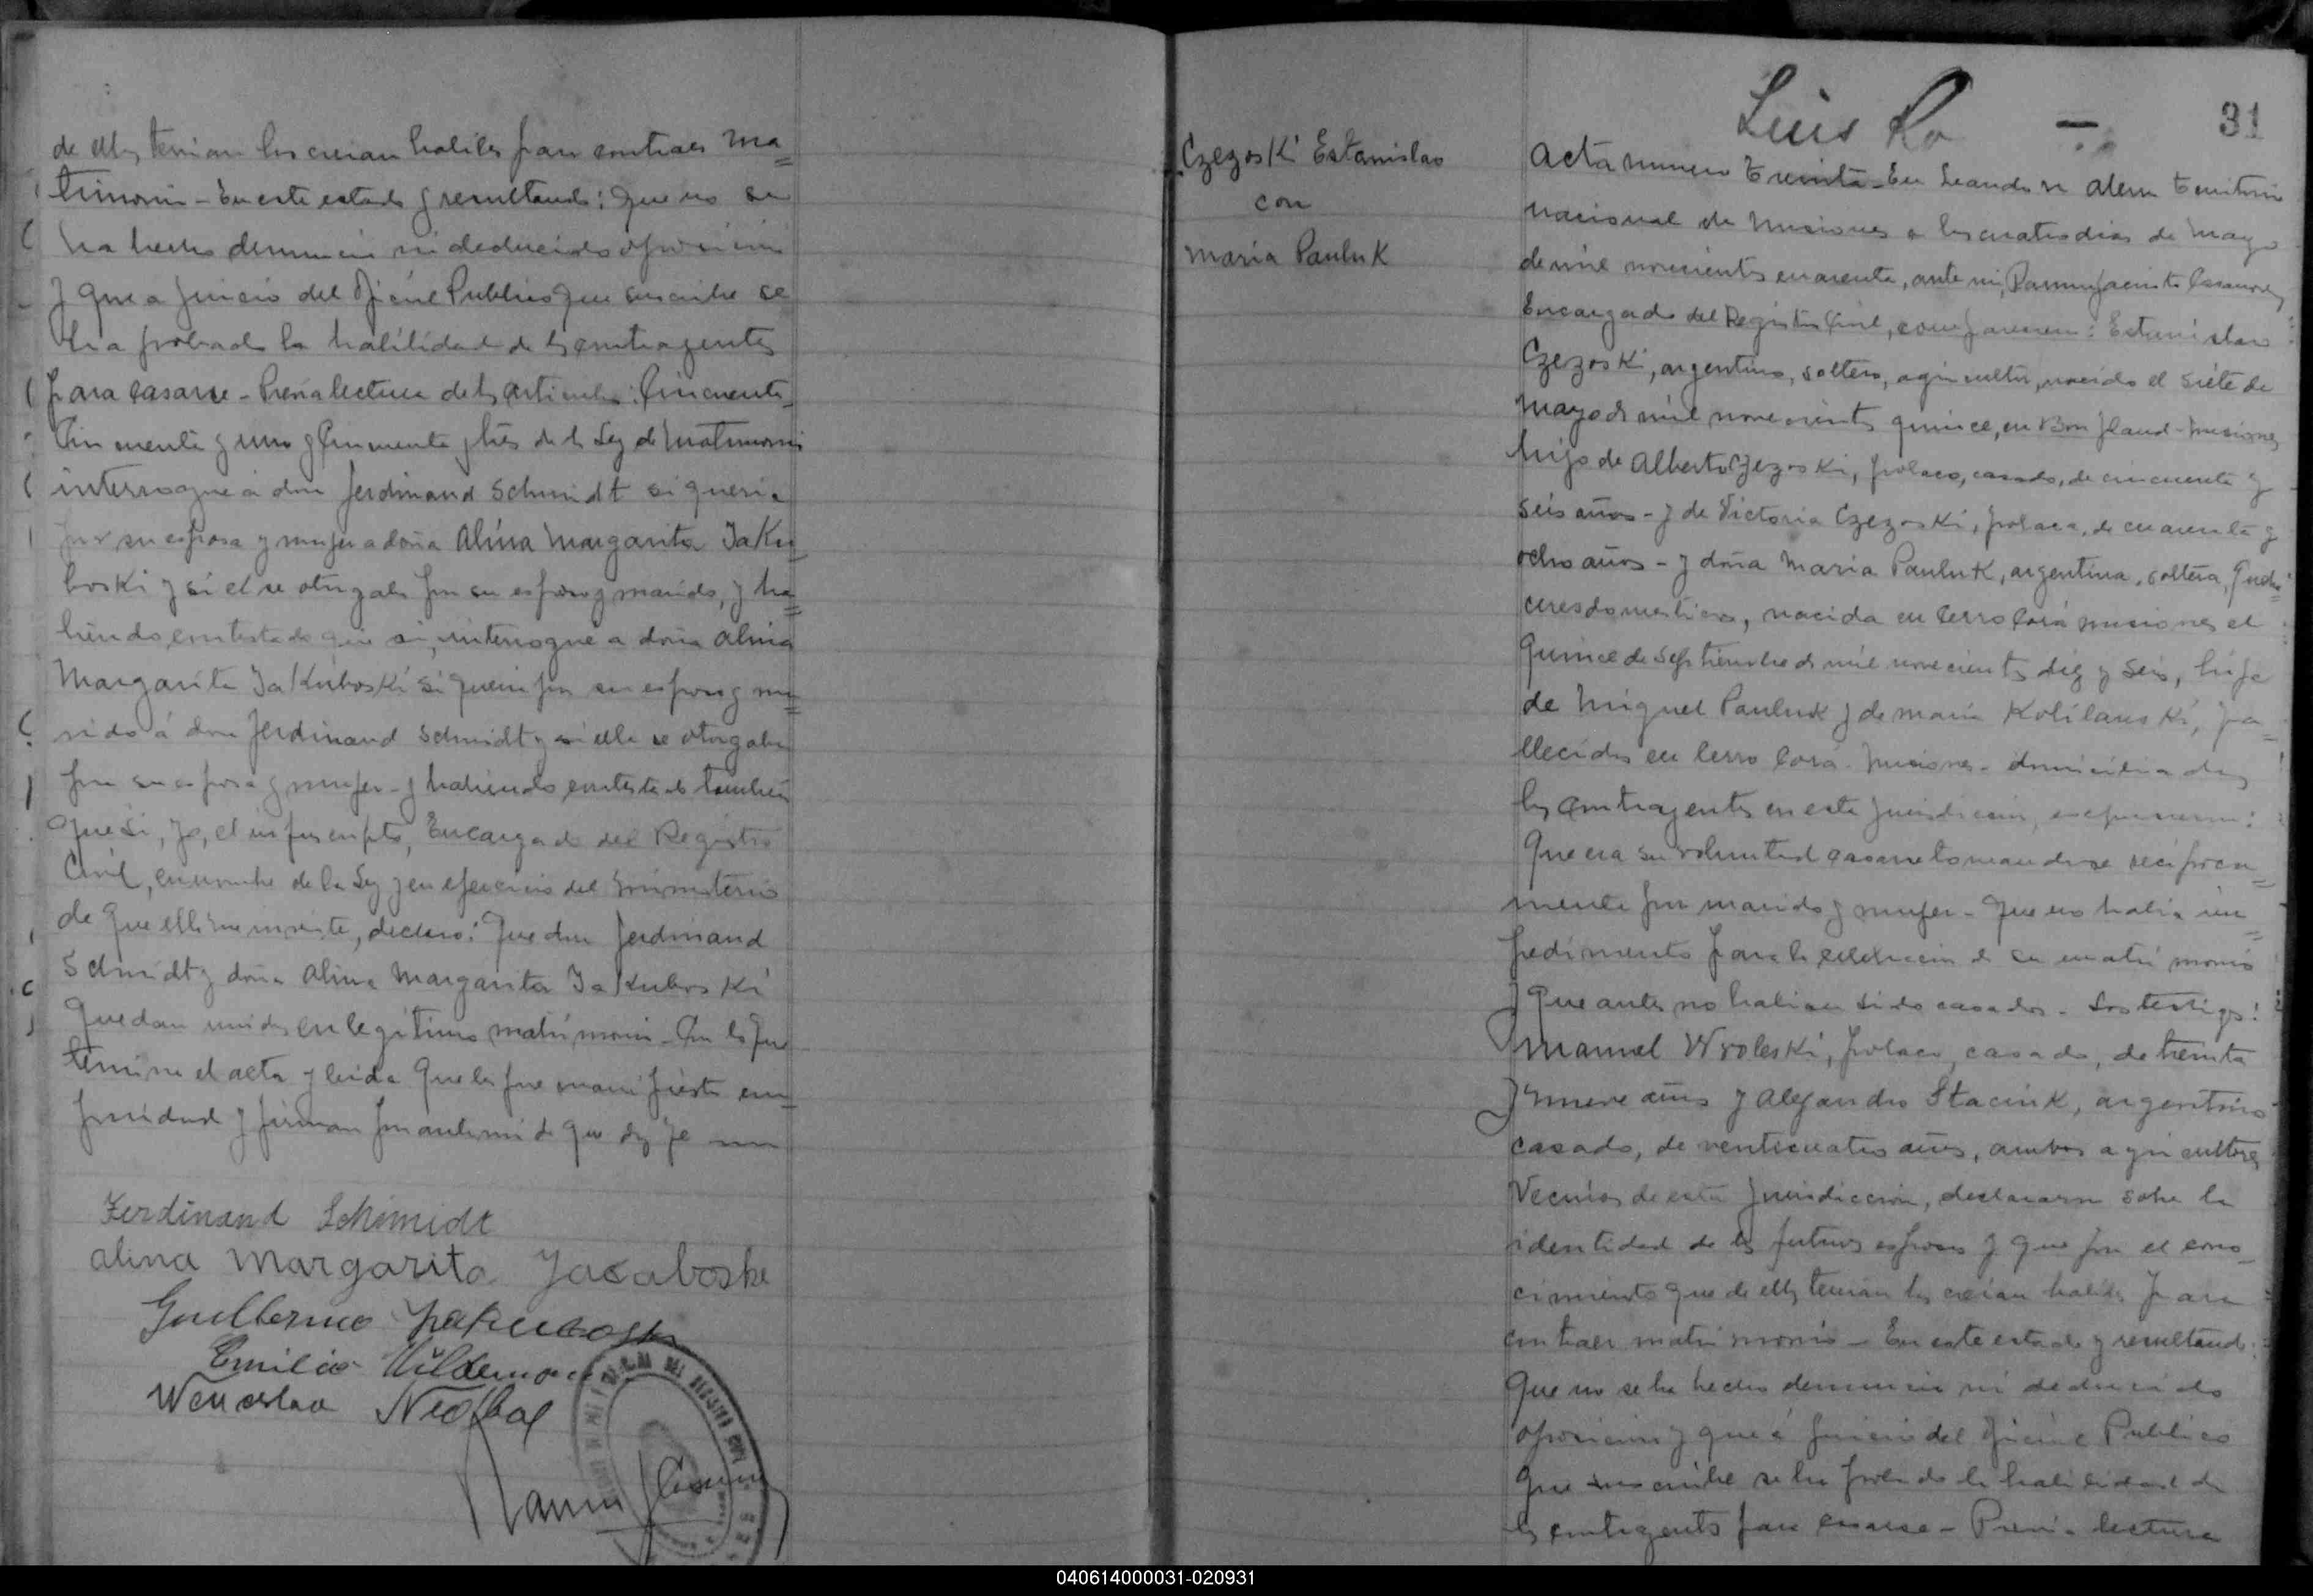 de ellos tenian los creian habiles para contraer ma=
trimonio - En este estado y resultando: Que no se
ha hecho denuncia ni deducido oposicion
y que a juicio del Oficial Publico que suscribe se
ha probado la habilidad de los contrayentes
para casarse - Previa lectura de los articulos: Cincuenta-
Cincuenta y uno y Cincuenta y tres de la Ley de Matrimonio
interrogue á don Ferdinand Schmidt si queria
por su esposa y mujer a doña Alina Margarita Jaku
boski y si el se otorgaba por su esposo y marido, y ha=
biendo contestado que si, interrogue a doña Alina
Margarita Jakuboski si queria por su esposo y ma=
rido á don Ferdinand Schmidt y si ella se otorgaba
por su esposa y mujer - y habiendo contestado tambien
que si, yo, el infrascripto, Encargado del Registro
Civil, en nombre de la Ley y en ejercicio del ministerio
de que ella me inviste, declaro: Que don Ferdinand
Schmidt y doña Alina Margarita Jakuboski
quedan unidos en legitimo matrimonio - Con lo que
termino el acta y leida que les fue manifiestan con
formidad y firman por ante mi de que doy fe
Ferdinand Schmidt
alina Margarita Jacaboske
Guillermo
Emilio
Wenceslao
Czezoski Estanislao
con
Maria Pauluk
Luis
31
Acta numero treinta - En Leandro N Alem territorio
nacional de Misiones a los cuatro dias de Mayo
de mil novecientos cuarenta, ante mi, Ramon Jacinto Casanova,
Encargado del Registro Civil, comparecen: Estanislao
Czezoski, argentino, soltero, agricultor, nacido el siete de
Mayo de mil novecientos quince, en Bonpland - Misiones
hijo de Alberto Czezoski, polaco, casado, de cincuenta y
seis años - y de Victoria Czezoski, polaca, de cuarenta y
ocho años - y doña Maria Pauluk, argentina, soltera, queha=
ceres domesticos, nacida en Cerro Corá Misiones el
quince de Septiembre de mil novecientos diez y seis, hija
de Miguel Pauluk y de Maria Kolilauski, fa=
llecidos en Cerro Corá - Misiones - domiciliados
los contrayentes en esta jurisdiccion, expusieron:
Que era su voluntad casarse tomandose reciproca=
mente por marido y mujer - Que no habia im=
pedimento para la celebracion de su matrimonio
y que antes no habian sido casados - Los testigos:
Manuel Wroleski, polaco, casado, de treinta
y nueve años y Alejandro Stacink, argentino
casado, de venticuatro años, ambos agricultores
Vecinos de esta jurisdiccion, declararon sobre la
identidad de los futuros esposos y que por el cono-
cimiento que de ellos tenian los creian habiles para
contraer matrimonio - En este estado y resultando:
Que no se ha hecho denuncia ni deducido
oposicion y que á juicio del Oficial Publico
que suscribe se ha probado la habilidad de
los contrayentes para casarse - Previa lectura
040614000031-020931